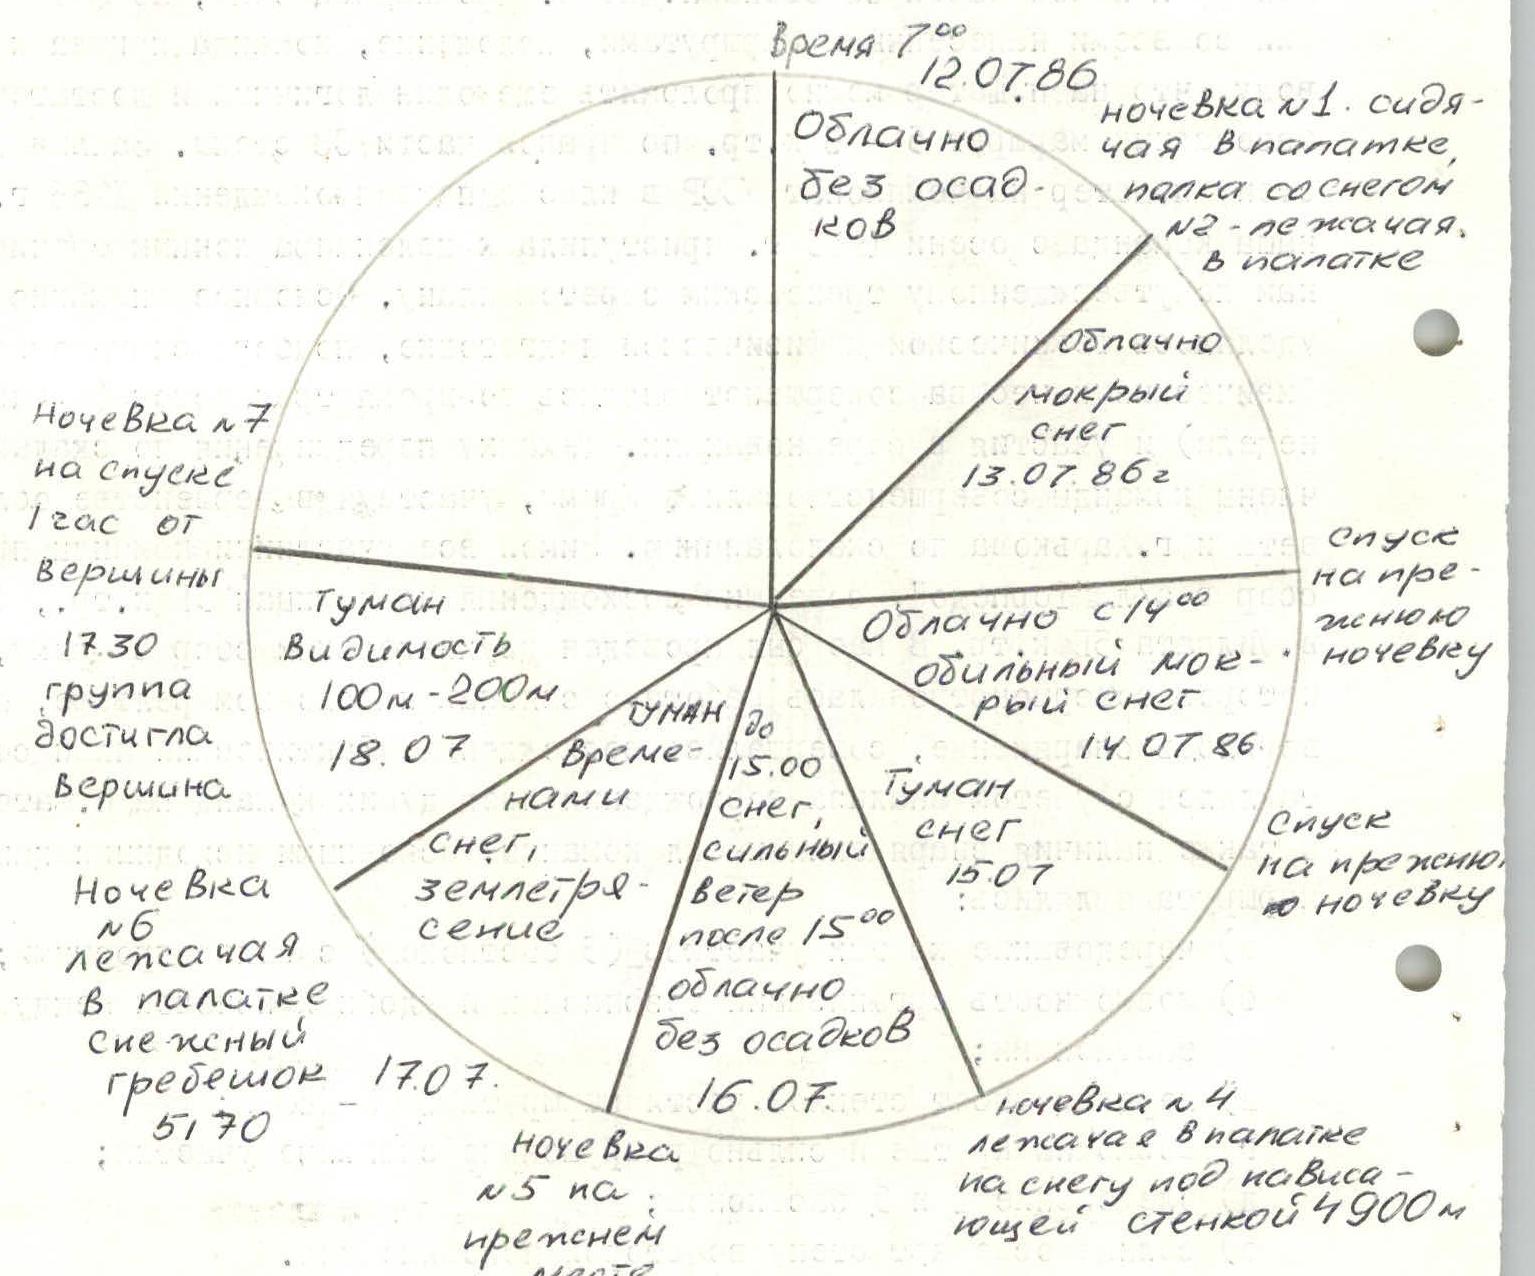 Время 7⁰⁰
12.07.86
Облачно
без осад-
ков
ночевка N1. сидя-
чая в палатке,
палка со снегом
N2 - лежачая.
в палатке
Облачно
мокрый
снег
13.07.86г
Спуск
на пре-
жнюю
ночевку
Облачно с 14⁰⁰
обильный мок-
рый снег
14.07.86
Спуск
на прежню
ю ночевку
Туман
снег
15.07
ночевка N4
лежачая в палатке
на снегу под нависа-
ющей стенкой 4900м
до
15.00
снег,
сильный
ветер
после 15⁰⁰
облачно
без осадков
16.07
Ночевка
N5 на
прежнем
месте
Туман
време-
нами
снег,
землетря-
сение
17.07.
Ночевка
N6
лежачая
в палатке
снежный
гребешок
5170
Туман
Видимость
100м-200м
18.07
Ночевка N7
на спуске
1 час от
вершины
17.30
группа
достигла
вершина